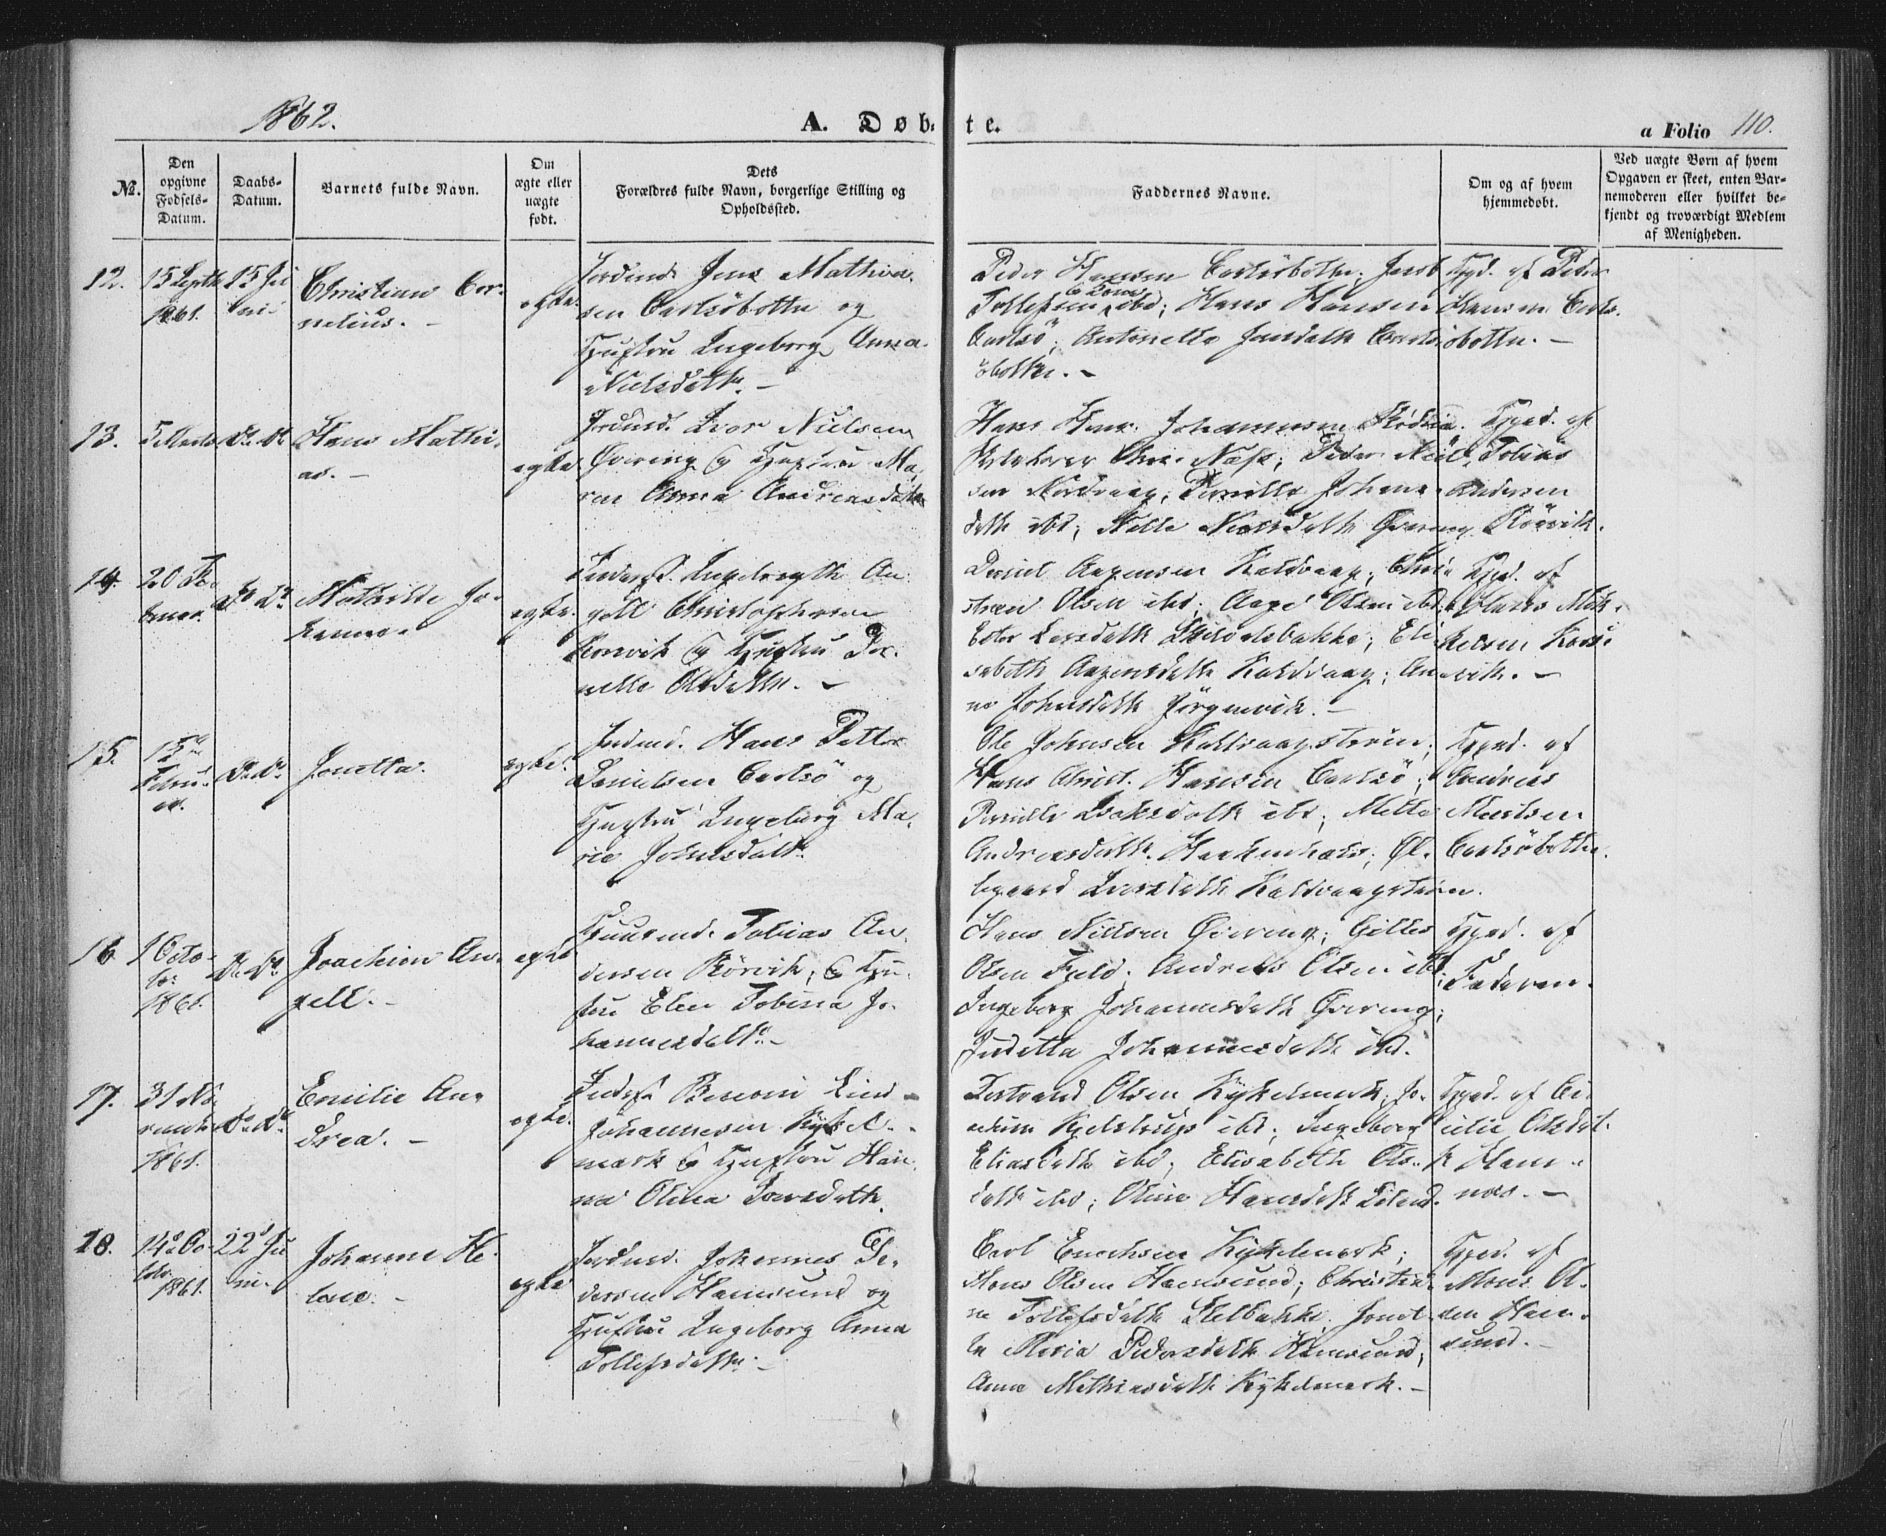 1862.
A. Døbte.
a Folio 110.
No.
Den opgivne Fødsels-Datum.
Daabs-Datum.
Barnets fulde Navn.
Om ægte eller uægte født.
Dets Forældres fulde Navn, borgerlige Stilling og Opholdssted.
Faddernes Navne.
Om og af hvem hjemmedøbt.
Ved uægte Børn af hvem Opgaven er skeet, enten Barnemoderen eller hvilket bekjendt og troværdigt Medlem af Menigheden.
12.
15 Septbr
1861.
15 Juni
Christian Cornelius. -
ægte
Jordind. Jens Mathiasen
Carlsöbotten og
Hustru Ingeborg Anna
Nielsdatter. -
Peder Hansen Carlsöbotten; Jacob
Tollefsen ibd; Hans Hansen
Carlsö; Antonette Jensdatter Carls-
öbotten. -
Hjd. af Peder
Hansen Carls-
öbotten. -
13.
5 Marts
Do. Do.
Hans Mathias. -
ægte
Jordind. Iver Nielsen
Øvereng & Hustru Ma-
ren Anna Andreasdatter
Hans Henr. Johannesen
Næss; Peder Niel-
sen Nordvaag; Pernille Johns-
datter ibd; Nille Nielsdatter Øvereng
Hjed. af
Tobias
Andersen
Rörvik.
14.
20 Februar
Do. Do.
Mathilde Johanna.
ægte.
Inderst. Ingebregth An-
gell Christophersen
Korsvik & Hustru Per-
nelle Olsdatter. -
Daniel Aagensen Kaldvaag; Chri-
stian Olsen ibd; Aage Olsen ibd;
Ester Larsdatter; Eli-
sabeth Aagensdatter Kaldvaag; An-
na Johnsdatter Jörgenvik. -
Hjed. af
Hans Mik-
kelsen Kors-
vik. -
15.
15de
Februar.
Do. Do.
Jonetta.
ægte.
Jordind. Hans Petter
Danielsen Carlsö og
Hustru Ingeborg Ma-
rie Johnsdatt.
Ole Johnsen Kaldvaagstrøm;
Hans Christ. Hansen Carlsö;
Pernille Isaksdatt ibd; Mette
Andreasdatter Haakenhals; Øl-
legaard Larsdatter Kaldvaagstrøm.
Hjed. af
Andreas
Martsen
Carlsöbotten.
16
1 Octo-
ber
1861.
Do. Do.
Joachim An-
gell. -
ægte
Huusmd. Tobias An-
dersen Rörvik, & Hu-
stru Elen Tobina Jo-
hannesdatt. -
Hans Nielsen Øvereng; Gilles
Olsen Fjeld; Andreas Olsen ibd;
Ingeborg Johannesdatter Øvereng;
Judetta Johannesdatter ibd.
Hjed. af
Faderen.
17.
31
1861.
Do. Do.
Emilie An-
drea. -
ægte.
Inderst Lind
Johannesen Kykel-
mark & Hustru Han-
na Olina Larsdatter.
Bertrand Olsen Kykelmark; Jo-
achim Kjelstrup ibd; Ingeborg
Eliasdatter ibd; Elisabeth Ols-
datt ibd; Oline Hansdatt
Hjed. af Ce-
cilie Olsdat-
ter Ham-
næs. -
18.
14de Oc-
tobr
1861.
22de Ju-
ni.
Johanne He-
lene. -
ægte
Jordind. Johannes Pe-
dersen Hamsund og
Hustru Ingeborg Anna
Tollefsdatter. -
Carl Enochsen Kykelmark;
Mons Olsen Hamsund; Christia-
ne Tollefsdatter; Jonet-
ta Maria Pedersdatter Hamsund;
Anna Mathiasdatter Kykelmark. -
Hjed. af
Mons Ol-
sen Ham-
sund. -